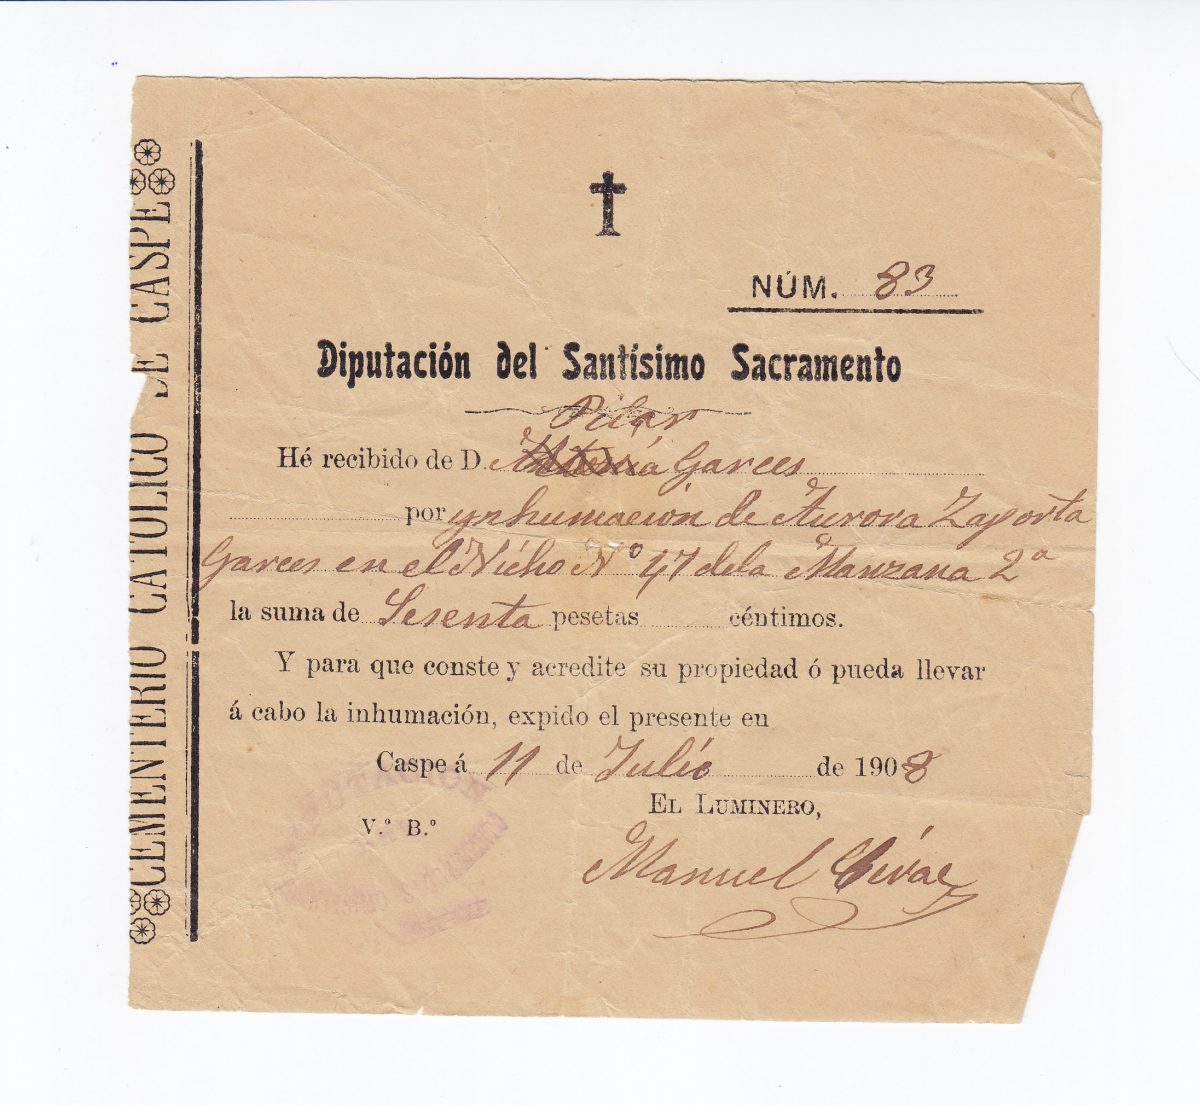 CEMENTERIO CATÓLICO DE CASPE
NÚM. 83
Diputación del Santísimo Sacramento
Pilar
Hé recibido de D. Antonia Garces
por ynhumación de Aurora Zaporta
Garces en el Nicho Nº 47 de la Manzana 2ª
la suma de Sesenta pesetas céntimos.
Y para que conste y acredite su propiedad ó pueda llevar
á cabo la inhumación, expido el presente en
Caspe á 11 de Julio de 1908
EL LUMINERO,
V.º B.º
Manuel